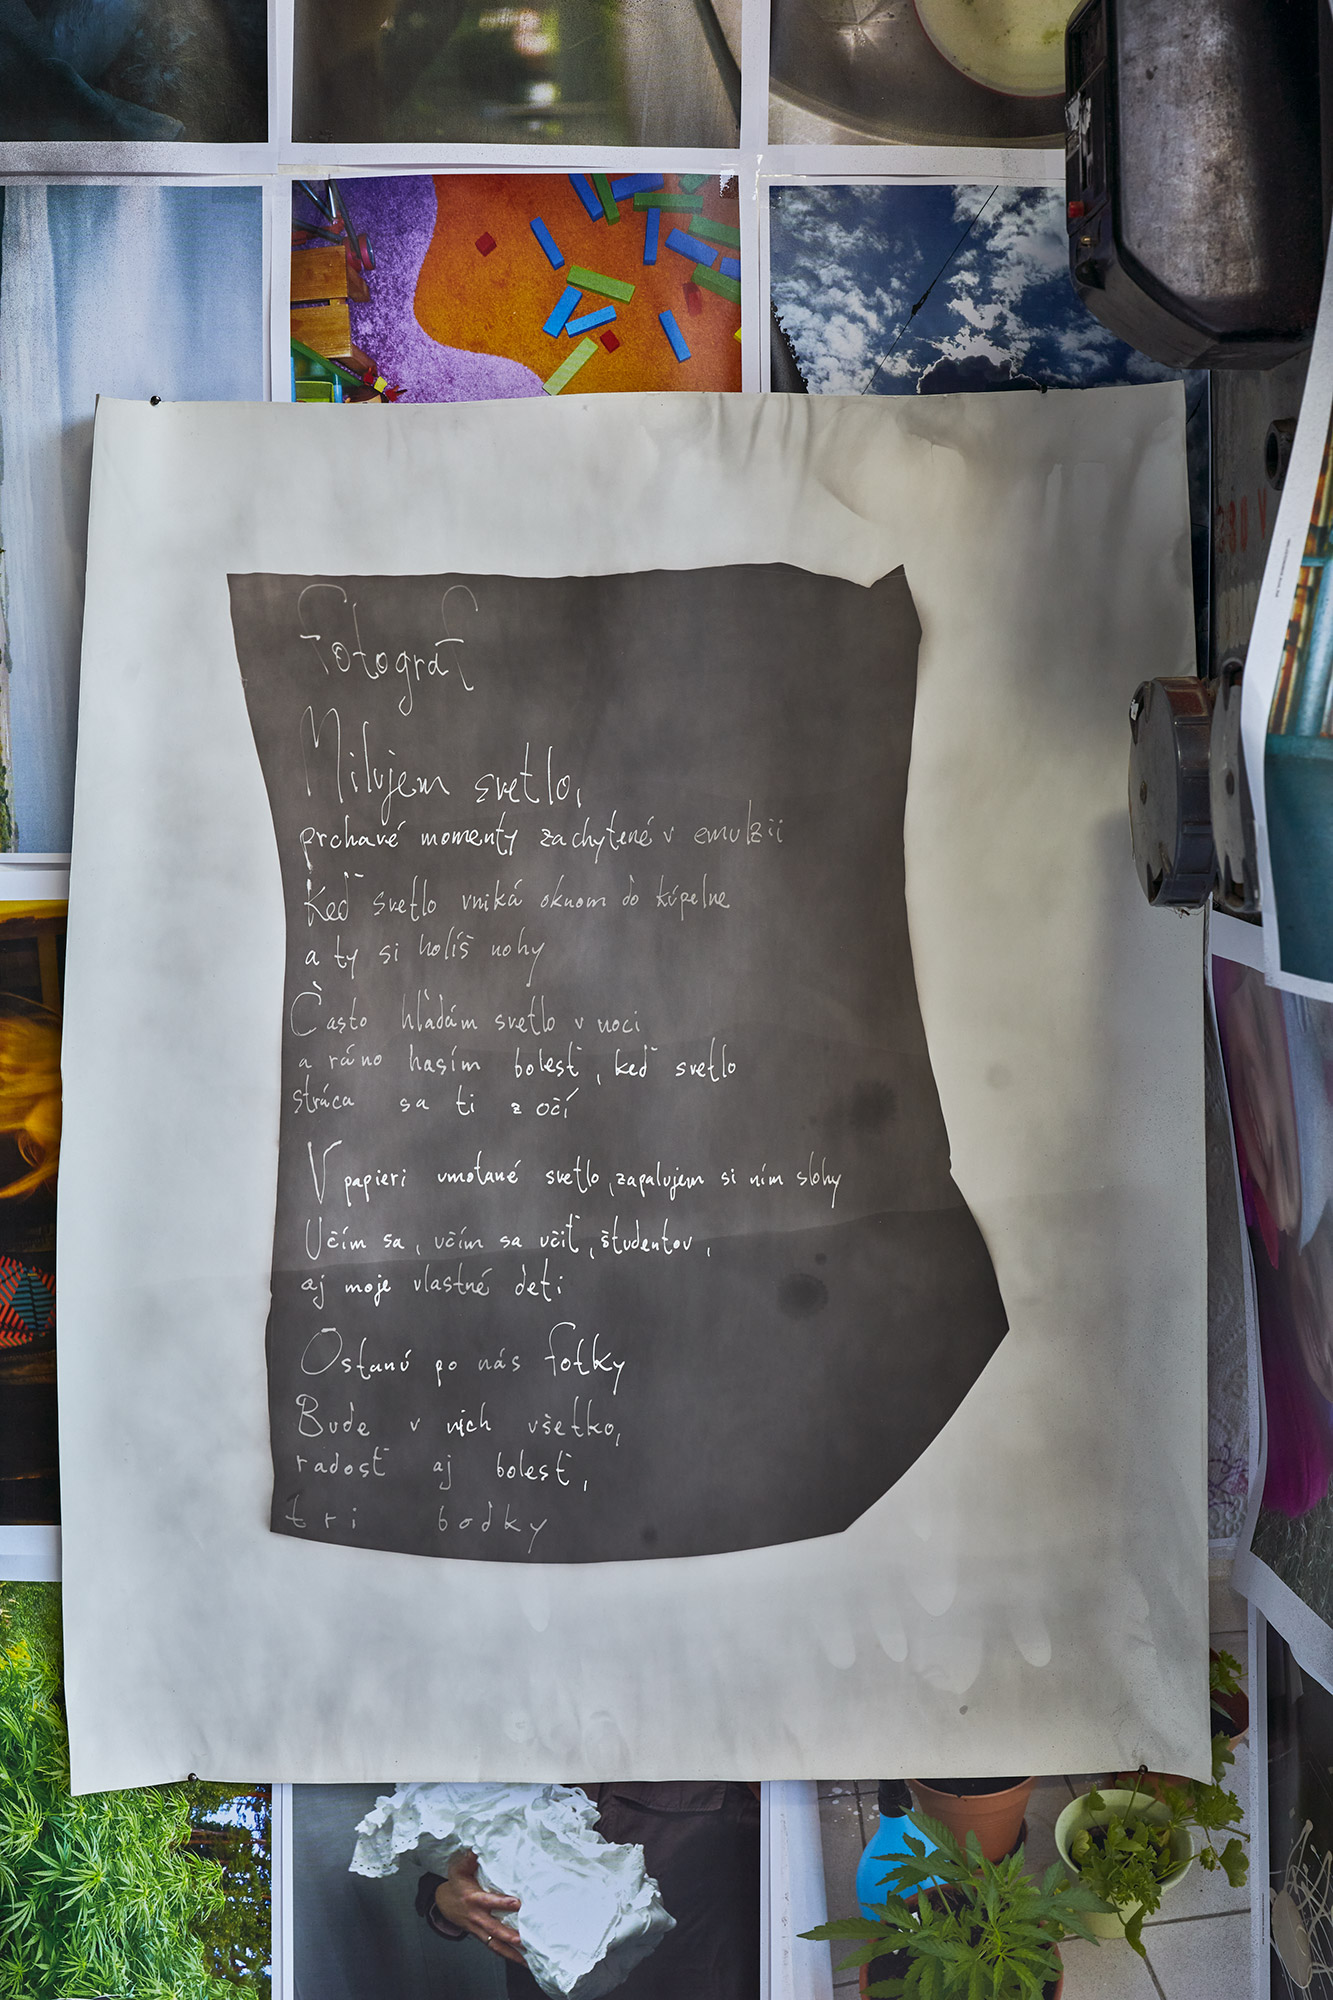 Fotograf
Milujem svetlo,
prchavé momenty zachytené v emulzii
Keď svetlo vniká oknom do kúpelne
a ty si holíš nohy
Často hľadám svetlo v noci
a ráno hasím bolesť, keď svetlo
stráca sa ti z očí
V papieri vmotané svetlo, zapalujem si ním slohy
Učím sa, učím sa učiť, študentov,
aj moje vlastné deti
Ostanú po nás fotky
Bude v nich všetko,
radosť aj bolesť,
tri bodky